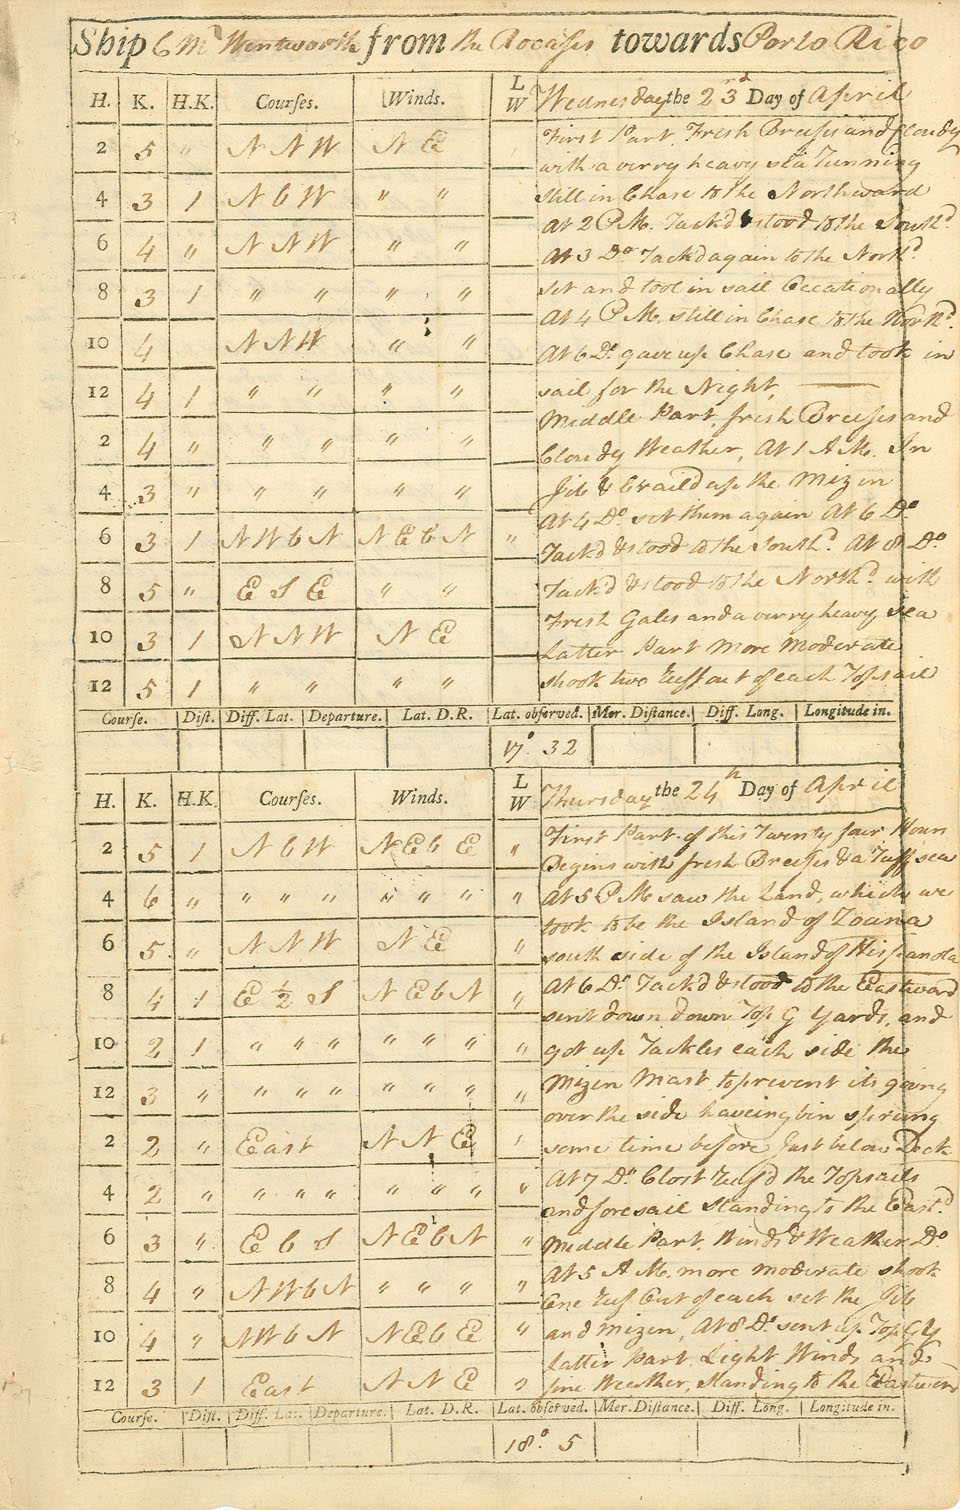 Ship G M Wentworth from the Rocasses towards Porto Rico
H. K. H.K. Courses. Winds. L W Wednesday the 23rd Day of April
2 5 " N N W N E
4 3 1 N b W " "
6 4 " N N W " "
8 3 1 " " " "
10 4 N N W " "
12 4 1 " " " "
2 4 " " " " "
4 3 " " " " "
6 3 1 N W b N N E b N "
8 5 " E S E " "
10 3 1 N N W N E
12 5 1 " " " "
First Part Fresh Breeses and Cloudy
with a verry heavy sea Running
still in Chase to the Northward
At 2 P M. Tack'd & stood to the South'd
At 3 Do Tack'd again to the North'd
set and took in sail Occationally
At 4 P M. still in Chase to the North'd
At 6 Do gave up Chase and took in
sail for the Night,
Middle Part, fresh Breeses and
Cloudy Weather, At 1 A M. In
Jib & Brail'd up the Mizin
At 4 Do set them again At 6 Do
Tack'd & stood to the South'd At 8 Do
Tack'd & stood to the North'd with
Fresh Gales and a verry heavy sea
Latter Part More Moderate
shook two Reff out of each Topsail
Course. Dist. Diff. Lat. Departure. Lat. D.R. Lat. observed. Mer. Distance. Diff. Long. Longitude in.
17° 32
H. K. H.K. Courses. Winds. L W Thursday the 24th Day of April
2 5 1 N b W N E b E "
4 6 " " " " " " " "
6 5 " N N W N E "
8 4 1 E ½ S N E b N "
10 2 1 " " " " " " "
12 3 " " " " " " " "
2 2 " East N N E "
4 2 " " " " " " " "
6 3 " E b S N E b N "
8 4 " N W b N " " " "
10 4 " N W b N N E b E "
12 3 1 East N N E "
First Part of this Twenty four Hours
Begins with fresh Breeses & a Ruff sea
At 5 P M saw the Land, which we
took to be the Island of Zoana
south side of the Island of Hispanola
At 6 Do Tack'd & stood to the Eastward
sent down down Top G Yards, and
got up Tackles each side the
Mizen Mast to prevent its going
over the side haveing bin sprung
some time before Just below Deck
At 7 Do Clost Reef'd the Topsails
and foresail standing to the East'd
Middle Part Winds & Weather Do
At 5 A M. more moderate shook
One Reef Out of each set the Jib
and Mizen, At 8 Do sent up Top G Y
Latter Part Light Winds and
fine Weather, standing to the Eastward
Course. Dist. Diff. Lat. Departure. Lat. D.R. Lat. observed. Mer. Distance. Diff. Long. Longitude in.
18° 5